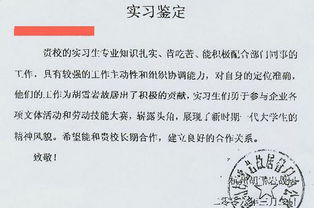 实习鉴定
贵校的实习生专业知识扎实、肯吃苦、能积极配合部门同事的
工作，具有较强的工作主动性和组织协调能力，对自身的定位准确，
他们的工作为胡雪岩故居出了积极的贡献，实习生们勇于参与企业各
项文体活动和劳动技能大赛，崭露头角，展现了新时期一代大学生的
精神风貌。希望能和贵校长期合作，建立良好的合作关系。
致敬！